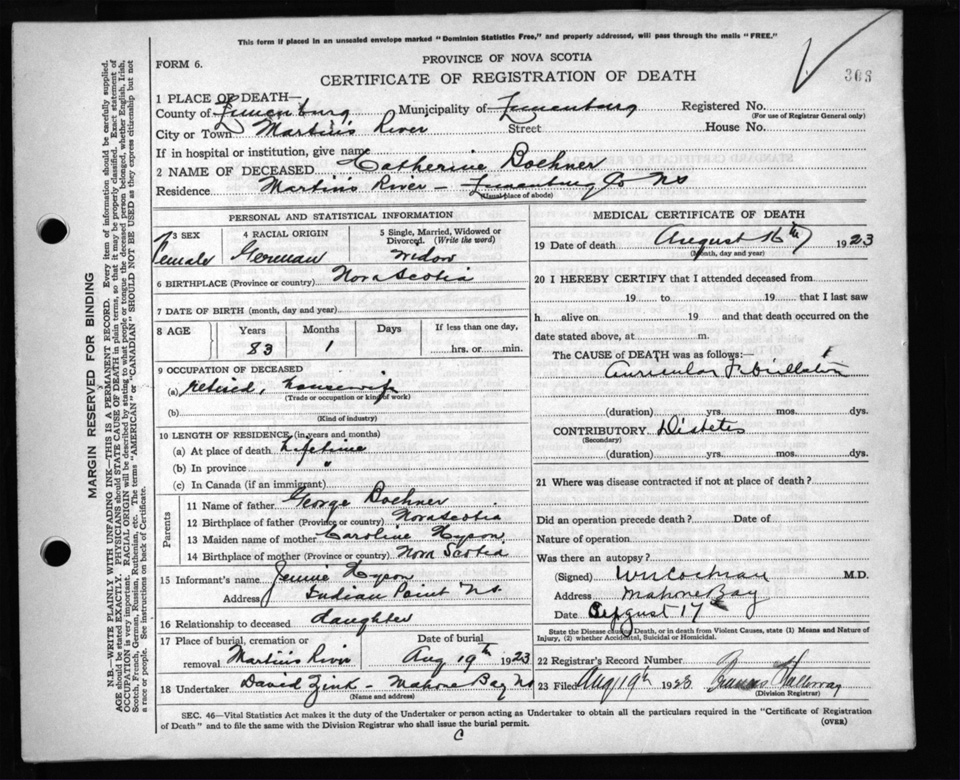 This form if placed in an unsealed envelope marked "Dominion Statistics Free," and properly addressed, will pass through the mails "FREE."
FORM 6.
PROVINCE OF NOVA SCOTIA
CERTIFICATE OF REGISTRATION OF DEATH
368
1 PLACE OF DEATH—
County of Lunenburg Municipality of Lunenburg Registered No.
(For use of Registrar General only)
City or Town Martin's River Street House No.
If in hospital or institution, give name
2 NAME OF DECEASED Catherine Boehner
Residence Martin's River — Lunenburg Co NS
(Usual place of abode)
PERSONAL AND STATISTICAL INFORMATION
3 SEX 4 RACIAL ORIGIN 5 Single, Married, Widowed or Divorced. (Write the word)
Female German Widow
6 BIRTHPLACE (Province or country) Nova Scotia
7 DATE OF BIRTH (month, day and year)
8 AGE Years Months Days If less than one day,
83 1 hrs. or min.
9 OCCUPATION OF DECEASED
(a) retired, housewife
(Trade or occupation or kind of work)
(b)
(Kind of industry)
10 LENGTH OF RESIDENCE (in years and months)
(a) At place of death Lifetime
(b) In province "
(c) In Canada (if an immigrant)
Parents
11 Name of father George Boehner
12 Birthplace of father (Province or country) Nova Scotia
13 Maiden name of mother Caroline Hyson
14 Birthplace of mother (Province or country) Nova Scotia
15 Informant's name Jennie Hyson
Address Indian Point NS.
16 Relationship to deceased daughter
17 Place of burial, cremation or removal Martin's River
Date of burial Aug 19th 1923
18 Undertaker David Zink - Mahone Bay NS
(Name and address)
MEDICAL CERTIFICATE OF DEATH
19 Date of death August 16th 1923
(Month, day and year)
20 I HEREBY CERTIFY that I attended deceased from
19 to 19 that I last saw
h alive on 19 and that death occurred on the
date stated above, at m.
The CAUSE of DEATH was as follows:—
Auricular Fibrillation
(duration) yrs. mos. dys.
CONTRIBUTORY Diabetes
(Secondary)
(duration) yrs. mos. dys.
21 Where was disease contracted if not at place of death?
Did an operation precede death? Date of
Nature of operation
Was there an autopsy?
(Signed) W N Cochran M.D.
Address Mahone Bay
Date August 17
State the Disease causing Death, or in death from Violent Causes, state (1) Means and Nature of Injury, (2) whether Accidental, Suicidal or Homicidal.
22 Registrar's Record Number
23 Filed Aug 19th 1923
(Division Registrar)
SEC. 46—Vital Statistics Act makes it the duty of the Undertaker or person acting as Undertaker to obtain all the particulars required in the "Certificate of Registration
of Death" and to file the same with the Division Registrar who shall issue the burial permit.
(OVER)
C
MARGIN RESERVED FOR BINDING
N.B.—WRITE PLAINLY WITH UNFADING INK—THIS IS A PERMANENT RECORD. Every item of information should be carefully supplied.
AGE should be stated EXACTLY. PHYSICIANS should STATE CAUSE OF DEATH in plain terms, so that it may be properly classified. Exact statement of
OCCUPATION is very important. RACIAL ORIGIN will be described by stating to what people or tongue the deceased person belonged, whether English, Irish,
Scotch, French, German, Russian, Ruthenian, etc. The terms "AMERICAN" or "CANADIAN" SHOULD NOT BE USED as they express citizenship but not
a race or people. See instructions on back of Certificate.